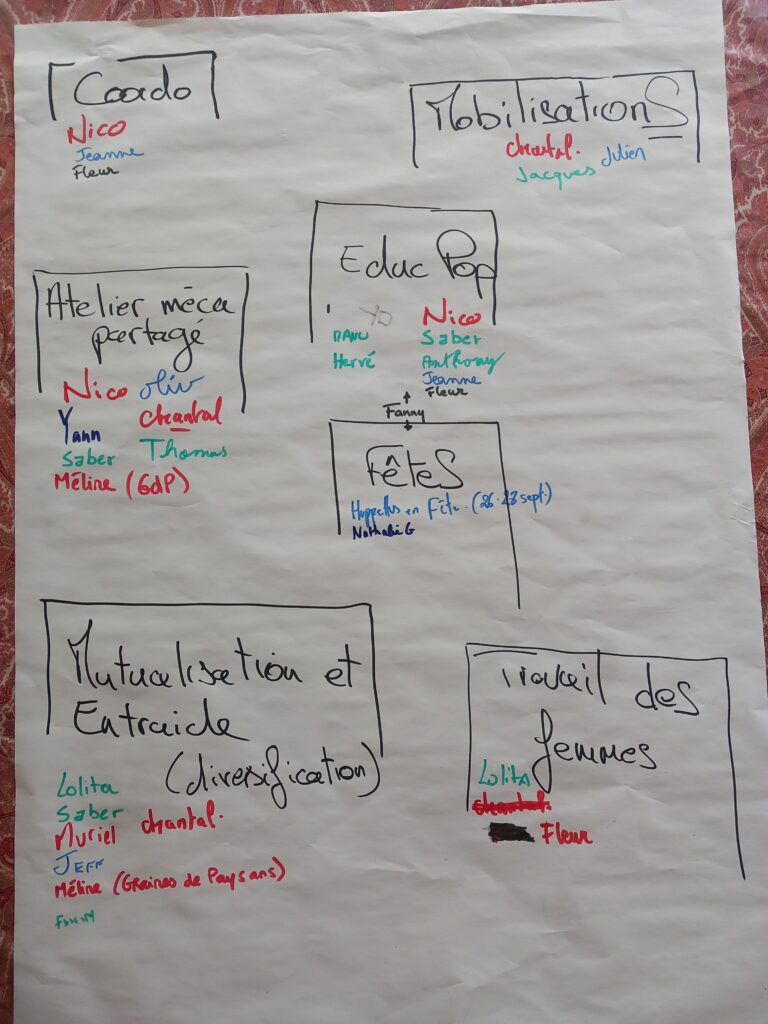 Coado
Nico
Jeanne
Fleur
MobilisationS
chantal. Julien
Jacques
Educ Pop
Nico
Saber
Hervé Anthony
Jeanne
Fleur
Fanny
Atelier méca
partagé
Nico oliv
Yann chantal
Saber Thomas
Méline (GdP)
FêteS
en Fête. (26-28 sept.)
Nathalie G
Mutualisation et
Entraide
(diversification)
Lolita
Saber
Muriel chantal.
JEFF
Méline (Graines de Paysans)
Travail des
femmes
Lolita
chantal.
Fleur